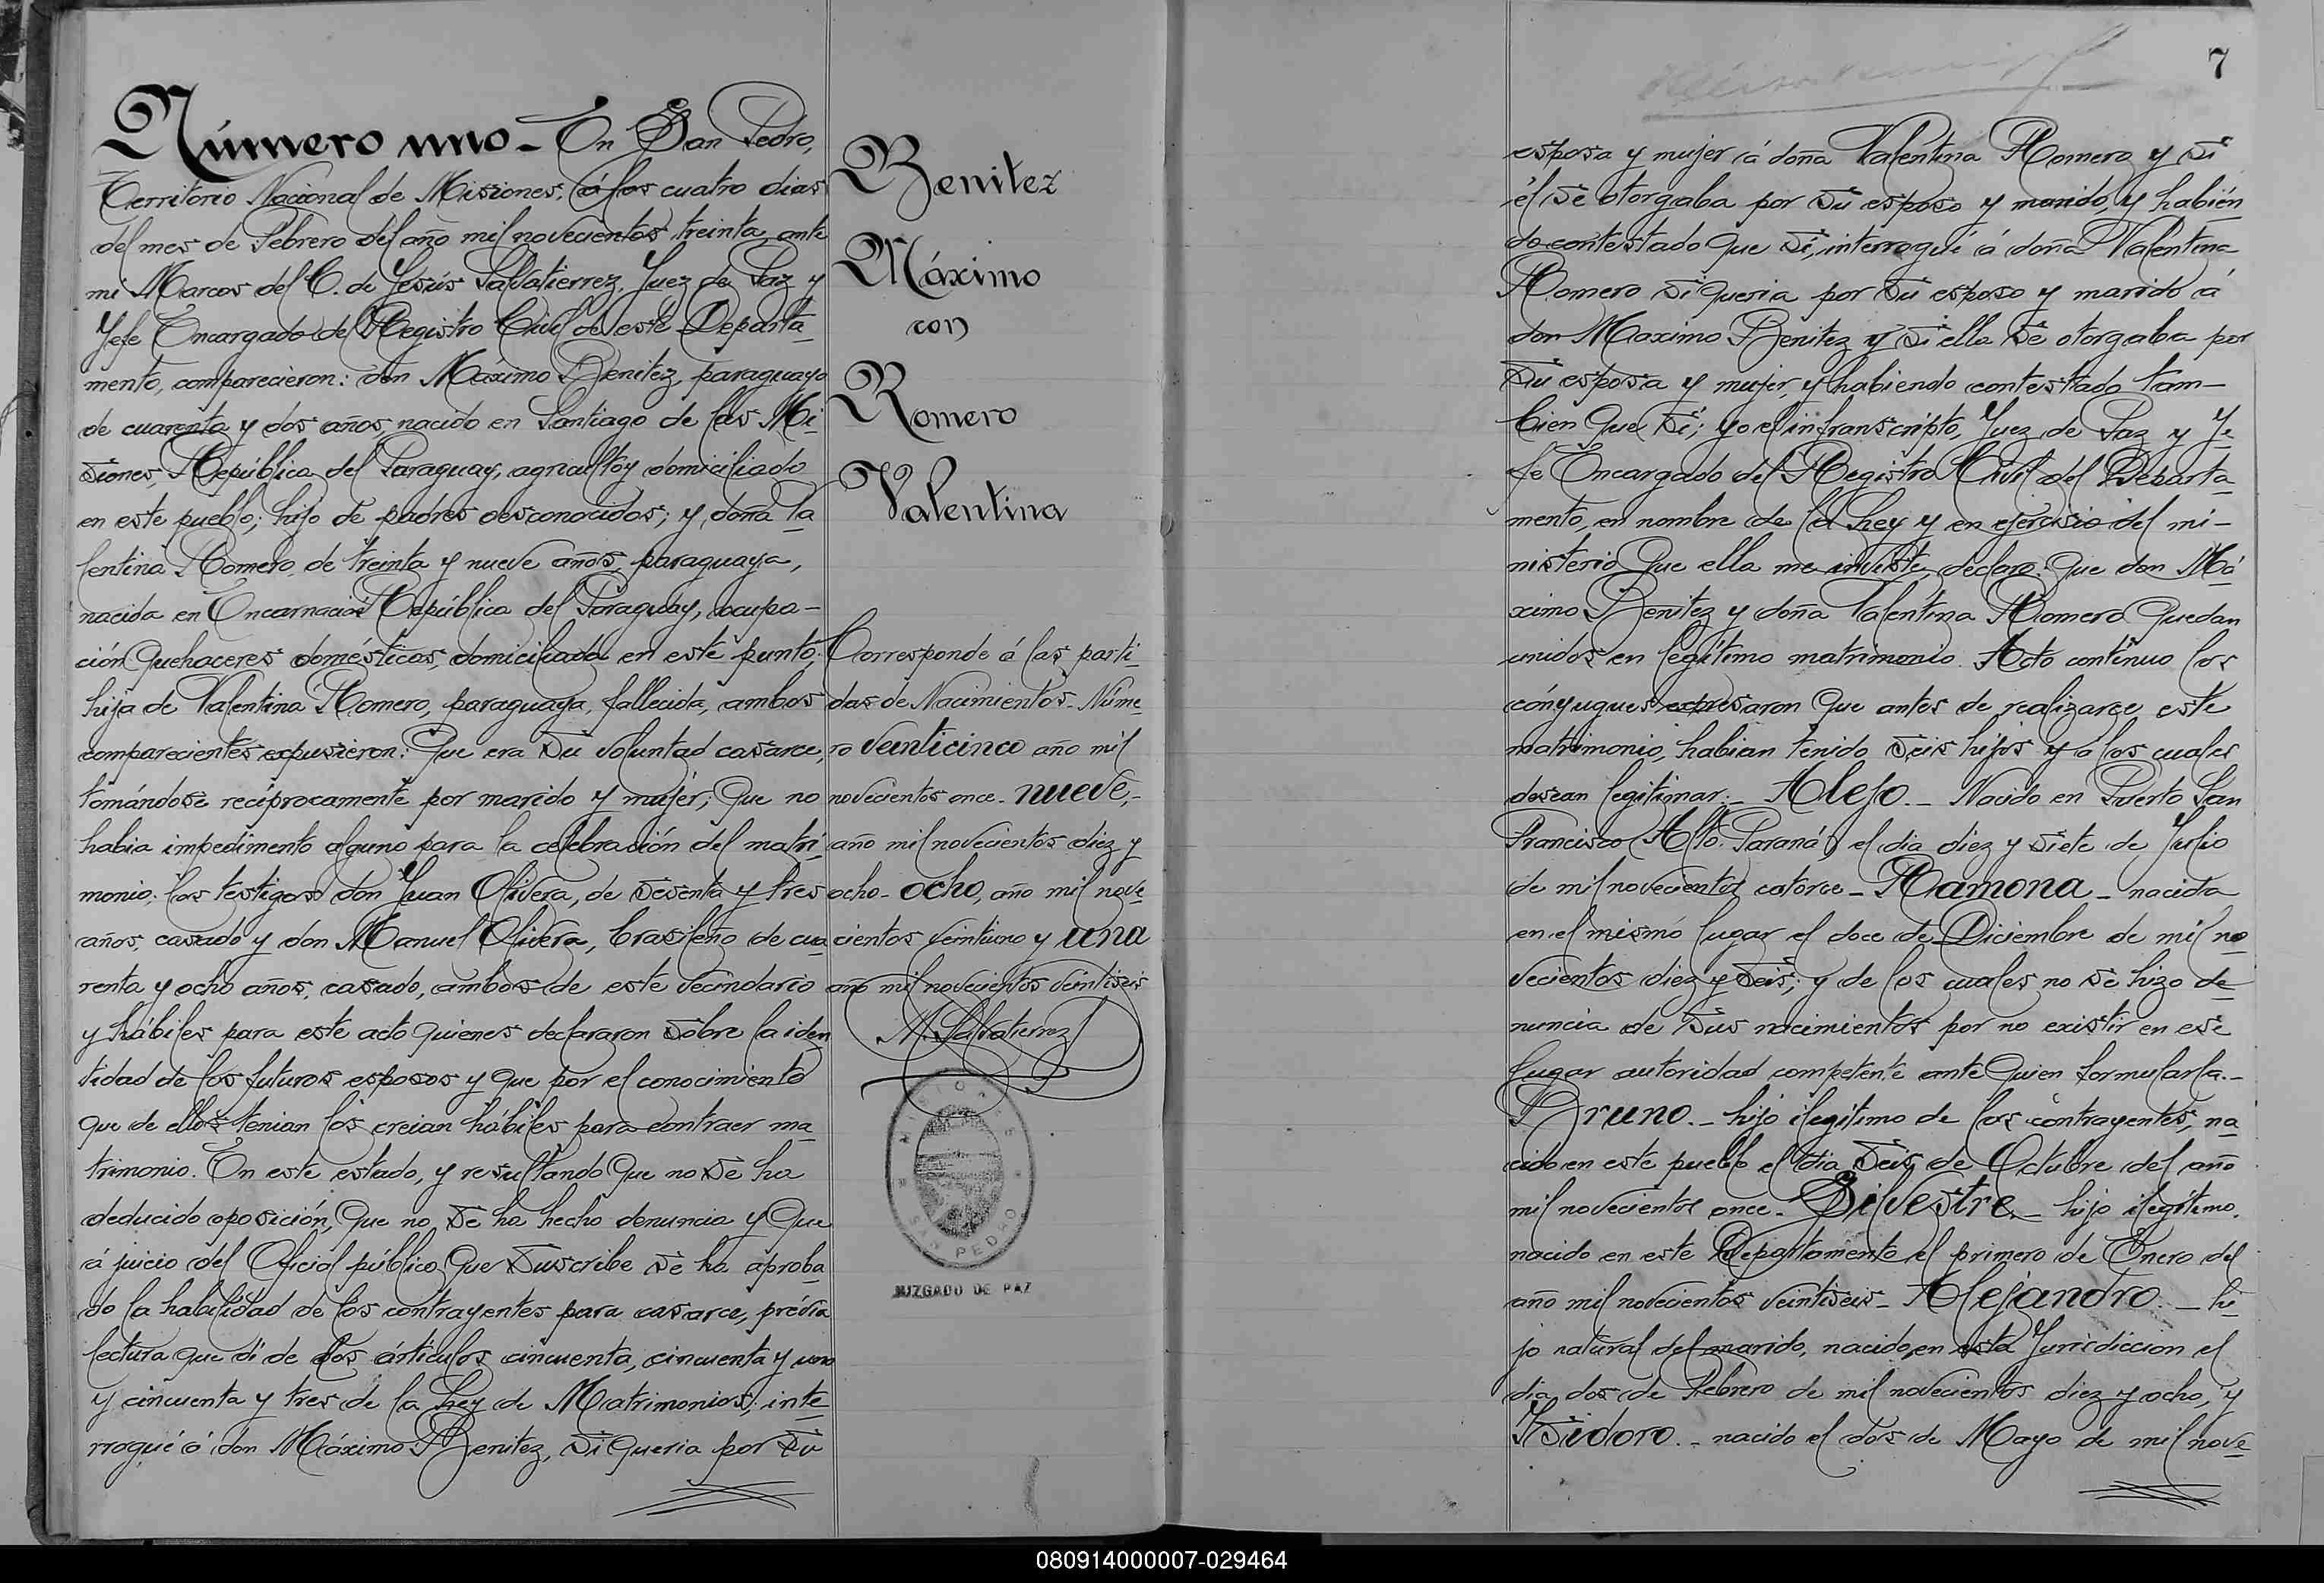 Número uno - En San Pedro,
Territorio Nacional de Misiones, á los cuatro dias
del mes de Febrero del año mil novecientos treinta, ante
mi Marcos del C. de Jesús Salvatierrez, Juez de Paz y
Jefe Encargado del Registro Civil de este Departa-
mento, comparecieron: don Máximo Benitez, paraguayo
de cuarenta y dos años, nacido en Santiago de las Mi-
siones, República del Paraguay, agricultor domiciliado
en este pueblo; hijo de padres desconocidos; y, doña Va
lentina Romero, de treinta y nueve años, paraguaya,
nacida en Encarnación República del Paraguay, ocupa-
ción quehaceres domésticos, domiciliada en este punto;
hija de Valentina Romero, paraguaya, fallecida, ambos
comparecientes expusieron: Que era su voluntad casarce,
tomándose recíprocamente por marido y mujer; Que no
habia impedimento alguno para la celebración del matri-
monio; los testigos don Juan Olivera, de sesenta y tres
años, casado y don Manuel Olivera, brasileño de cua
renta y ocho años, casado, ambos de este vecindario
y hábiles para este acto quienes declararon sobre la iden
tidad de los futuros esposos y que por el conocimiento
que de ellos tenian los creian hábiles para contraer ma
trimonio. En este estado, y resultando que no se ha
deducido oposición, Que no se ha hecho denuncia y Que
á juicio del Oficial público Que suscribe se ha aproba
do la habilidad de los contrayentes para casarce, prévia
lectura que di de los árticulos cincuenta, cincuenta y uno
y cincuenta y tres de la Ley de Matrimonios; inte-
rrogué á don Máximo Benitez, si queria por su
Benitez
Máximo
con
Romero
Valentina
Corresponde á las parti-
das de Nacimientos - Núme-
ro veinticinco año mil
novecientos once - nueve,-
año mil novecientos diez y
ocho - ocho, año mil nove
cientos veintiuno y una
año mil novecientos veintiseis
M. Salvatierrez
MISIONES
SAN PEDRO
JUZGADO DE PAZ
7
esposa y mujer á doña Valentina Romero y si
él se otorgaba por su esposo y marido, y habién
do contestado Que si, interrogué á doña Valentina
Romero si queria por su esposo y marido á
don Maximo Benitez y si ella se otorgaba por
su esposa y mujer, y habiendo contestado tam-
bien que si; yo el infranscripto, Juez de Paz y Je
fe Encargado del Registro Civil del Departa-
mento, en nombre de la Ley y en ejercisio del mi-
nisterio que ella me inviste, declaro: Que don Má
ximo Benitez y doña Valentina Romero quedan
unidos en legítimo matrimonio. Acto contínuo los
cónyugues expresaron Que antes de realizarce este
matrimonio, habian tenido seis hijos y á los cuales
desean legitimar:- Alejo.- Nacido en Puerto San
Francisco (Alto Paraná) el dia diez y siete de Julio
de mil novecientos catorce - Ramona - nacida
en el mismo lugar el doce de Diciembre de mil no
vecientos diez y seis; y de los cuales no se hizo de-
nuncia de sus nacimientos por no existir en ese
lugar autoridad competente ante Quien formularla.-
Bruno.- hijo ilegítimo de los contrayentes, na
cido en este pueblo el dia seis de Octubre del año
mil novecientos once - Silvestre - hijo ilegítimo,
nacido en este Departamento el primero de Enero del
año mil novecientos veintiseis - Alejandro.- hi
jo natural del marido, nacido en esta Jurisdiccion el
dia dos de Febrero de mil novecientos diez y ocho, y
Isidoro.- nacido el dos de Mayo de mil nove-
080914000007-029464